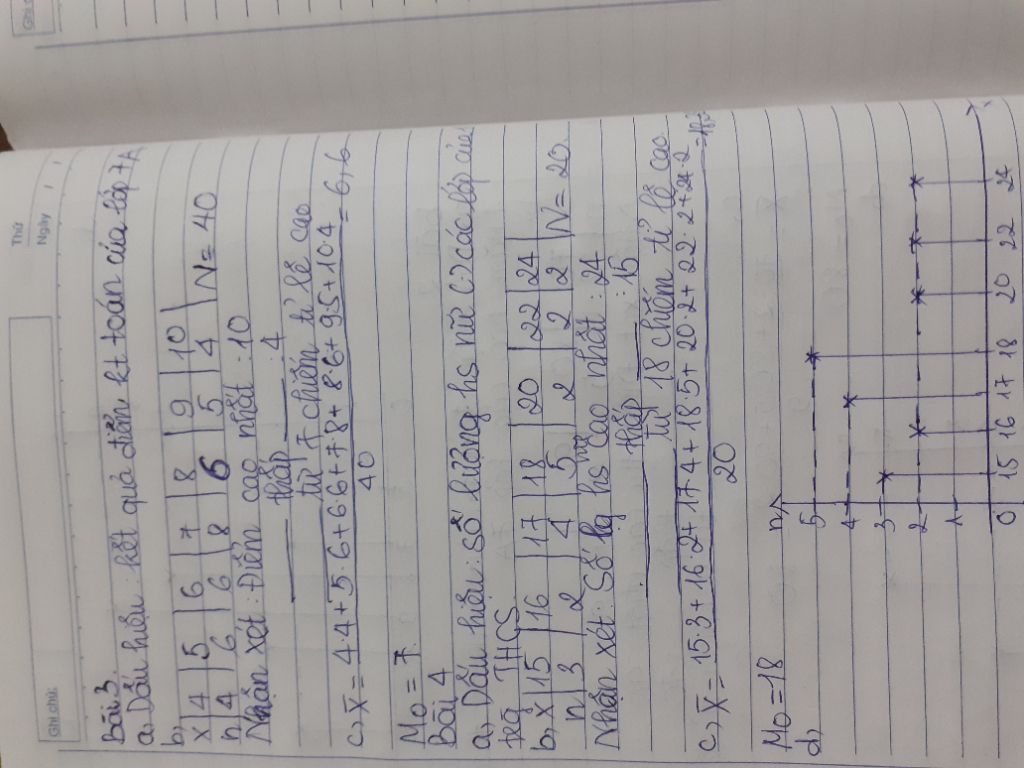 Thứ
Ngày
Ghi chú:
Bài 3
a, Dấu hiệu: kết quả điểm kt toán của lớp 7A
b,
x | 4 | 5 | 6 | 7 | 8 | 9 | 10 |
n | 4 | 6 | 6 | 8 | 6 | 5 | 4 | N = 40
Nhận xét: Điểm cao nhất: 10
thấp : 4
từ 7 chiếm tỉ lê cao
c, X̄ = 4.4+5.6+6.6+7.8+8.6+9.5+10.4 = 6,6
40
Mo = 7
Bài 4
a, Dấu hiệu: Số lương hs nữ các lớp của
THCS
b, x | 15 | 16 | 17 | 18 | 20 | 22 | 24 |
n | 3 | 2 | 4 | 5 | 2 | 2 | 2 | N = 20
Nhận xét: Số lg hs nữ cao nhất: 24
thấp : 15
từ 18 chiếm tỉ lê cao
c, X̄ = 15.3+16.2+17.4+18.5+20.2+22.2+24.2
20
Mo = 18
d,
n
5
4
3
2
1
0 15 16 17 18 20 22 24 x